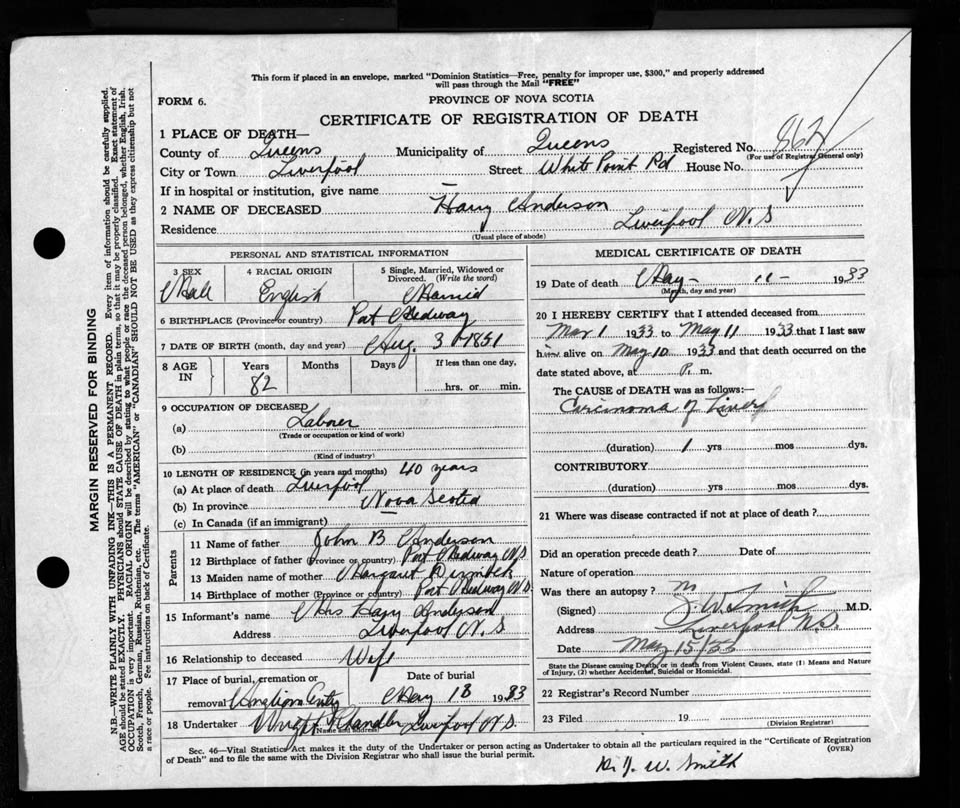 This form if placed in an envelope, marked "Dominion Statistics—Free, penalty for improper use, $300," and properly addressed
will pass through the Mail "FREE"
FORM 6.
PROVINCE OF NOVA SCOTIA
CERTIFICATE OF REGISTRATION OF DEATH
1 PLACE OF DEATH—
County of Queens Municipality of Queens Registered No. 862
(For use of Registrar General only)
City or Town Liverpool Street White Point Rd House No.
If in hospital or institution, give name —
2 NAME OF DECEASED Harry Anderson
Residence Liverpool N.S
(Usual place of abode)
PERSONAL AND STATISTICAL INFORMATION
3 SEX 4 RACIAL ORIGIN 5 Single, Married, Widowed or
Divorced. (Write the word)
Male English Married
6 BIRTHPLACE (Province or country) Port Medway
7 DATE OF BIRTH (month, day and year) Aug. 3 1851
8 AGE IN Years Months Days If less than one day,
82 hrs. or min.
9 OCCUPATION OF DECEASED
(a) Laborer
(Trade or occupation or kind of work)
(b)
(Kind of industry)
10 LENGTH OF RESIDENCE (in years and months) 40 years
(a) At place of death Liverpool
(b) In province Nova Scotia
(c) In Canada (if an immigrant)
Parents
11 Name of father John B Anderson
12 Birthplace of father (Province or country) Port Medway N.S
13 Maiden name of mother Margaret
14 Birthplace of mother (Province or country) Port Medway N.S
15 Informant's name Mrs Harry Anderson
Address Liverpool N.S
16 Relationship to deceased Wife
17 Place of burial, cremation or Date of burial
removal May 18 1933
18 Undertaker Wright Chandler Liverpool N.S.
(Name and address)
MEDICAL CERTIFICATE OF DEATH
19 Date of death May - 11 - 1933
(Month, day and year)
20 I HEREBY CERTIFY that I attended deceased from
May 1 1933 to May 11 1933 that I last saw
him alive on May 10 1933 and that death occurred on the
date stated above, at P. m.
The CAUSE OF DEATH was as follows:—
Carcinoma of Liver
(duration) 1 yrs mos dys.
CONTRIBUTORY
(duration) yrs mos dys.
21 Where was disease contracted if not at place of death?
Did an operation precede death? Date of
Nature of operation
Was there an autopsy? no
(Signed) J. W. Smith M.D.
Address Liverpool N.S.
Date May 15/33
State the Disease causing Death, or in death from Violent Causes, state (1) Means and Nature
of Injury, (2) whether Accidental, Suicidal or Homicidal.
22 Registrar's Record Number
23 Filed 19
(Division Registrar)
Sec. 46—Vital Statistics Act makes it the duty of the Undertaker or person acting as Undertaker to obtain all the particulars required in the "Certificate of Registration
of Death" and to file the same with the Division Registrar who shall issue the burial permit.
(OVER)
J. W. Smith
MARGIN RESERVED FOR BINDING
N.B.—WRITE PLAINLY WITH UNFADING INK—THIS IS A PERMANENT RECORD. Every item of information should be carefully supplied.
AGE should be stated EXACTLY. PHYSICIANS should STATE CAUSE OF DEATH in plain terms, so that it may be properly classified. Exact statement of
OCCUPATION is very important. RACIAL ORIGIN will be described by stating to what people or race the deceased person belonged, whether English, Irish,
Scotch, French, German, Russian, Ruthenian, etc. The terms "AMERICAN" or "CANADIAN" SHOULD NOT BE USED as they express citizenship but not
a race or people. Fee instructions on back of Certificate.